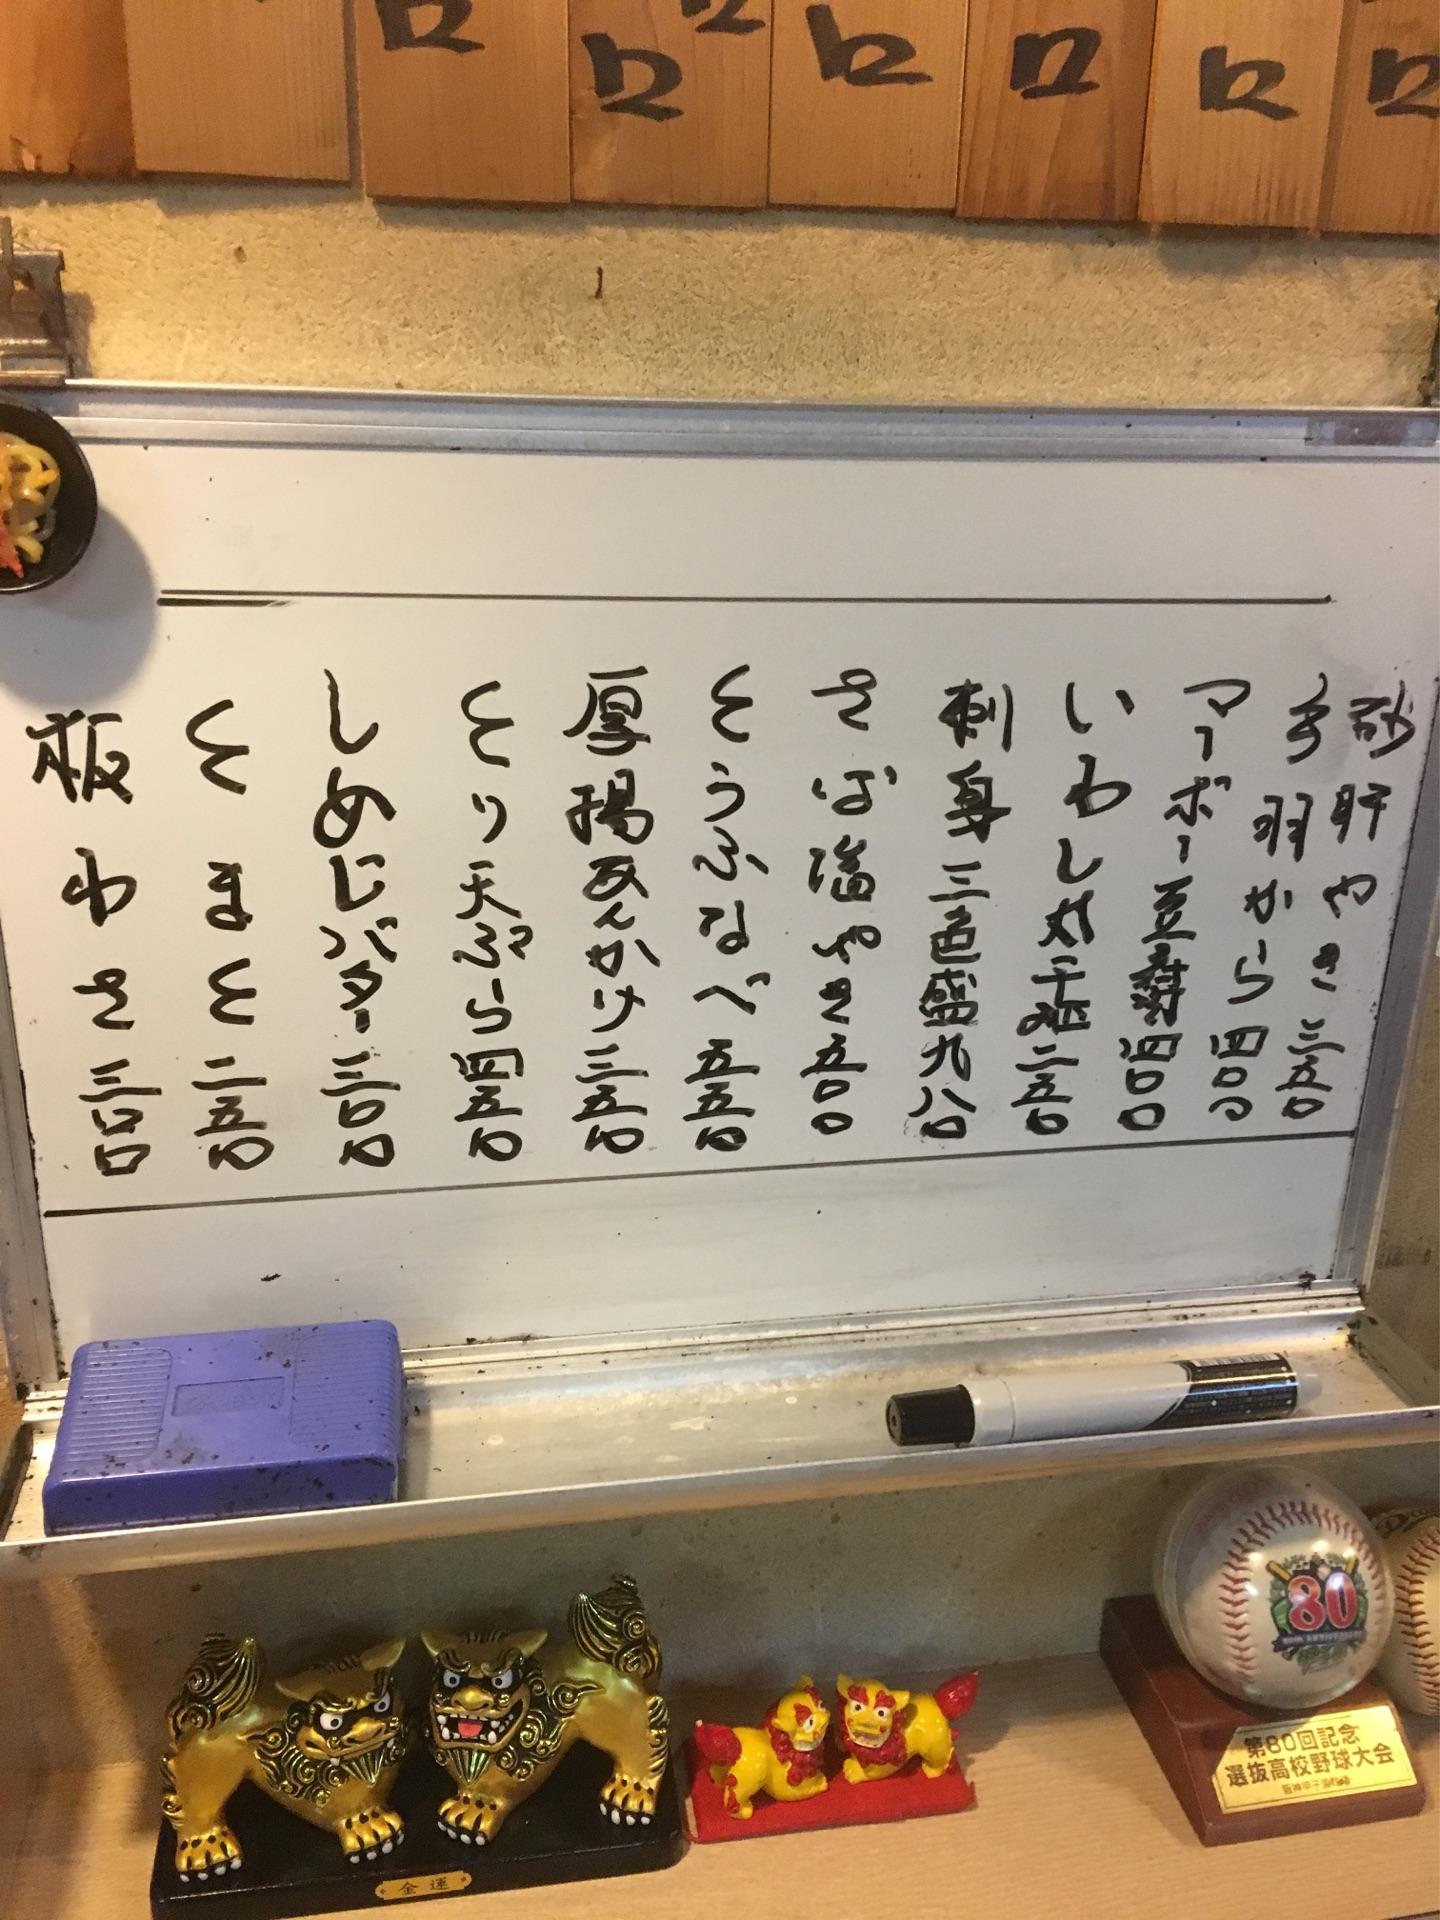 砂肝やき三五〇
手羽から四〇〇
マーボー豆腐四〇〇
いわし丸干し二五〇
刺身三色盛九八〇
さば塩やき五〇〇
とうふなべ五五〇
厚揚あんかけ三五〇
とり天ぷら四五〇
しめじバター三〇〇
とまと二五〇
板わさ三〇〇
金運
80
第80回記念
選抜高校野球大会